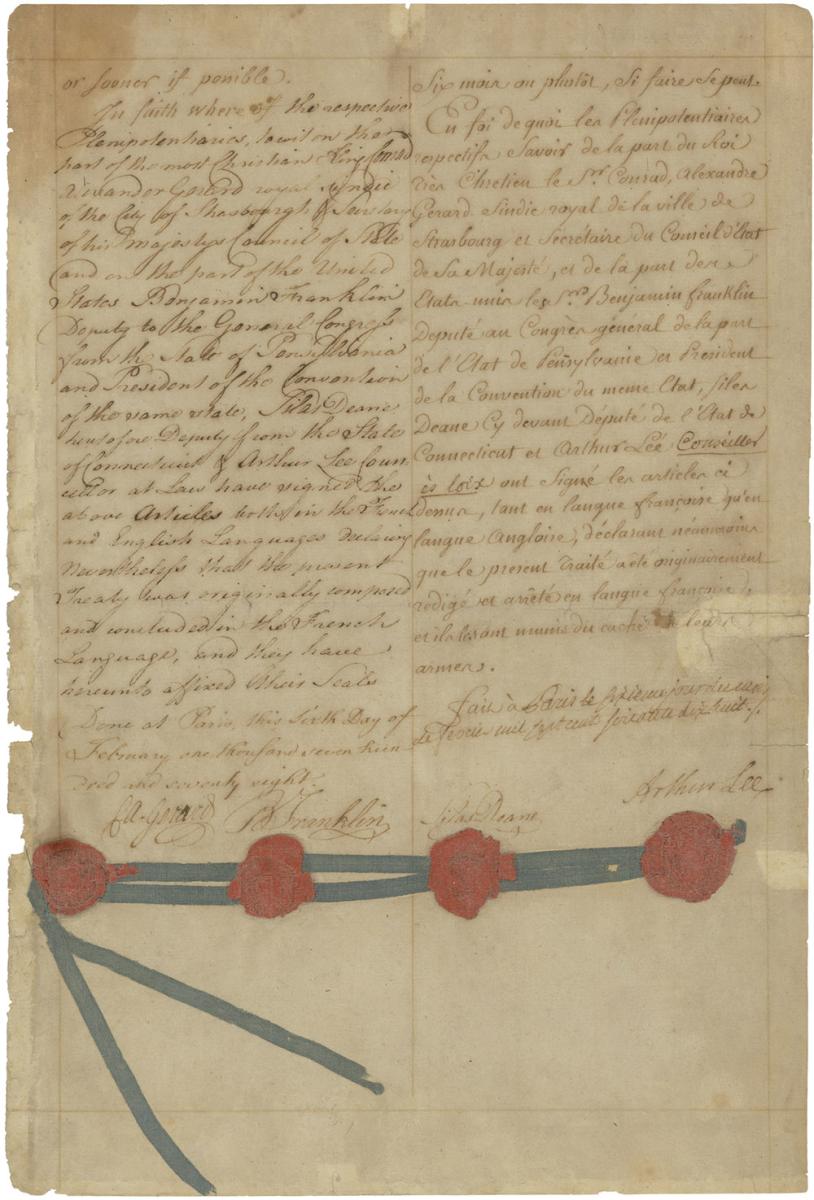 or sooner if possible.
In faith where of the respective
Plenipotentiaries, to wit on the
part of the most Christian King Conrad
Alexander Gerard royal syndic
of the City of Strasbourgh & Secretary
of his majestys Council of State
and on the part of the United
States Benjamin Franklin
Deputy to the General Congress
from the State of Pensylvania
and President of the Convention
of the same state, Silas Deane
heretofore Deputy from the State
of Connecticut & Arthur Lee Coun-
cellor at Law have signed the
above Articles both in the French
and English Languages declaring
Nevertheless that the present
Treaty was originally composed
and concluded in the French
Language, and they have
hereunto affixed their Seals
Done at Paris, this sixth Day of
February one thousand seven hun-
dred and seventy eight.
Six mois ou plustôt, Si faire Se peut.
En foi de quoi les Plenipotentiaires
respectifs Savoir de la part du Roi
très Chretien le Sr. Conrad, Alexandre
Gerard Sindic royal de la ville de
Strasbourg et Sécrétaire du Conseil d'Etat
de Sa Majesté, et de la part des
Etats-unis les Srs. Benjamin franklin
Deputé au Congrès général de la part
de l'Etat de Pensylvanie et President
de la Convention du meme Etat, Silas
Deane Cy devant Député de l'Etat de
Connecticut et Arthur Lée Conseiller
ès loix ont Signé les articles ci
dessus, tant en langue françoise qu'en
langue Angloise, déclarant néanmoins
que le present Traité a été originairement
rédigé et arrêté en langue françoise,
et ils les ont munis du cachet de leurs
armes.
fait à Paris le sixieme jour du mois
de fevrier mil sept cent soixante dix huit.
C. A. Gerard B Franklin Silas Deane Arthur Lee